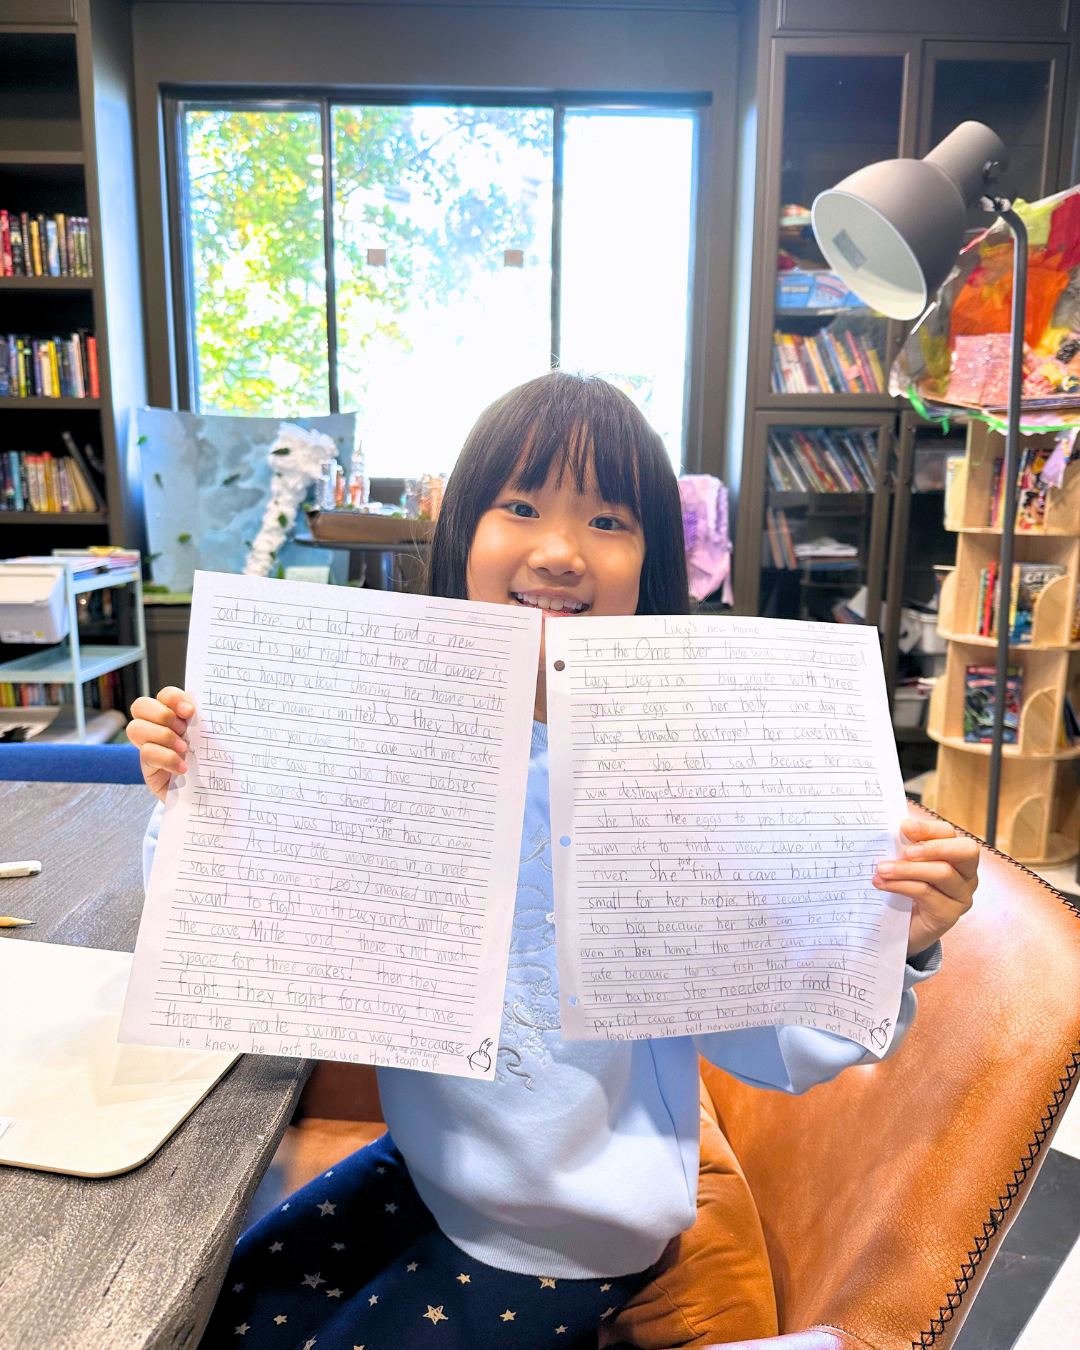 "Lucy's new home"
In the Ome River there was a snake named
Lucy. Lucy is a big snake with three
snake eggs in her belly. one day a
large tornado destroyed her cave in the
river. she feels sad because her cave
was destroyed, she needs to find a new cave. But
she has thee eggs to protect. so she
swim off to find a new cave in the
river. She first find a cave but it is
small for her babies. the second cave is
too big because her kids can be lost
even in her home! the therd cave is not
safe because the is fish that can eat
her babies. She needed to find the
perfict cave for her babies so she keep
looking. she felt nervous because it is not safe
out here. at last, she fond a new
cave-it is just right but the old owner is
not so happy about sharing her home with
Lucy (her name is mille). So they had a
talk. can you share the cave with me? asks
Lusy. mille saw she also have babies
then she agreed to share her cave with
Lucy. Lucy was happy she has a new
cave. As Lusy are moveing in, a male
snake (his name is Leo's) sneaked in and
want to fight with Lucy and mille for
the cave. Mille said "there is not much
space for three snakes!" then they
fight. they fight for a long time
then the male swims a-way because
he knew he lost. Because they team up.